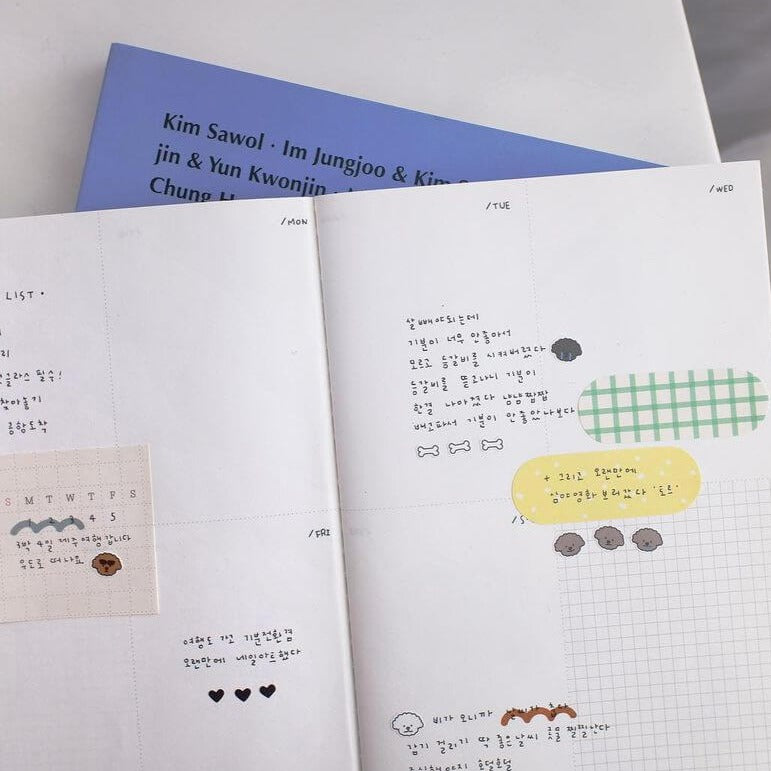 Kim Sawol · Im Jungjoo & Kim S
jin & Yun Kwonjin ·
Chung H
/MON
LIST •
리
글라스 필수!
찾아놓기
공항도착
S M T W T F S
1 2 3 4 5
3박 4일 제주여행갑니다
우도로 떠나요
/FRI
여행도 가고 기분전환겸
오랜만에 네일아트했다
/TUE
살빼야되는데
기분이 너무 안좋아서
모르고 등갈비를 시켜버렸다
등갈비를 뜯고나니 기분이
한결 나아졌다 냠냠짭짭
배고파서 기분이 안좋았나보다
/WED
+ 그리고 오랜만에
심야영화 보러갔다 '토르'
/S
비가 오니까 날씨가 춥다
감기 걸리기 딱 좋은날씨 콧물 찔찔난다
조심해야지 호덜호덜